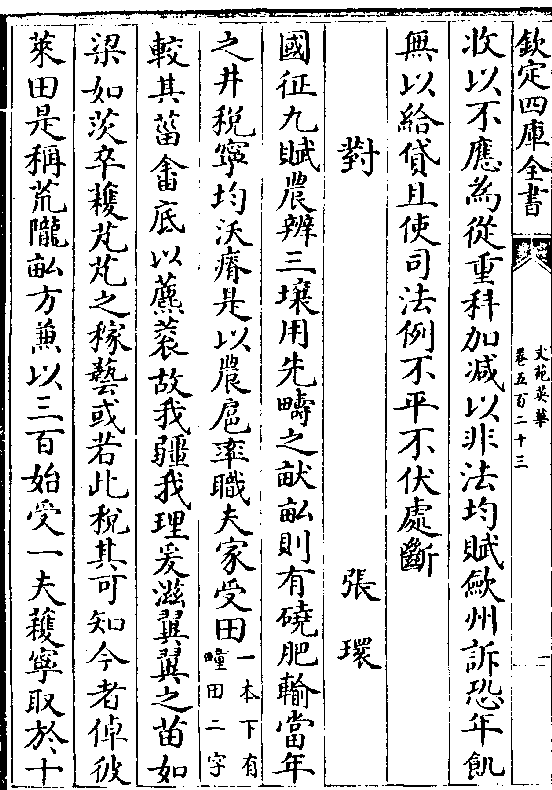 欽定四庫全書
文苑英華
卷五百二十三
收以不應為從重科加減以非法均賦歛州訴恐年飢
無以給貸且使司法例不平不伏處斷
對 張環
國征九賦農辨三壤用先疇之畎畝則有磽肥輸當年
之井稅寧均沃瘠是以農扈率職夫家受田一本下有疃田二字
較其菑畬底以藨蓘故我疆我理爰滋翼翼之苗如
梁如茨卒穫芃芃之稼藝或若此稅其可知今者倬彼
萊田是稱荒隴畝方兼以三百始受一夫穫寧取於十